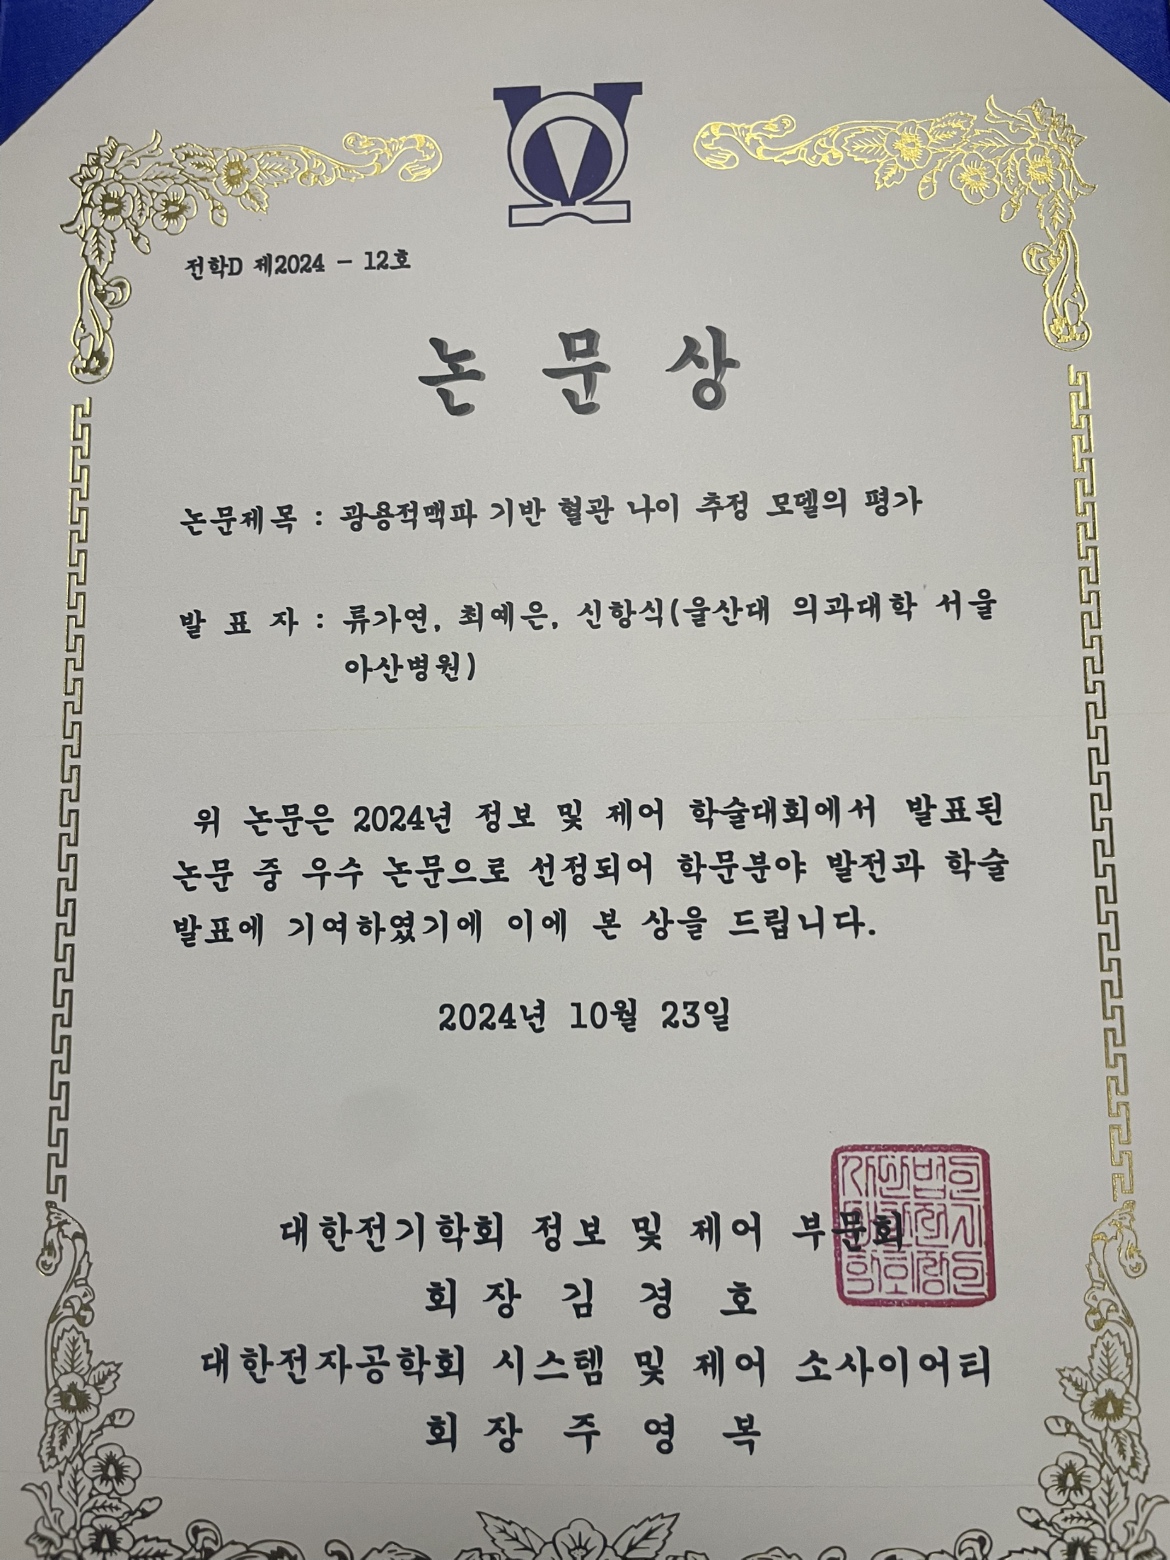 전학D 제2024 - 12호
논 문 상
논문제목 : 광용적맥파 기반 혈관 나이 추정 모델의 평가
발 표 자 : 류가연, 최예은, 신항식(울산대 의과대학 서울
아산병원)
위 논문은 2024년 정보 및 제어 학술대회에서 발표된
논문 중 우수 논문으로 선정되어 학문분야 발전과 학술
발표에 기여하였기에 이에 본 상을 드립니다.
2024년 10월 23일
대한전기학회 정보 및 제어 부문회
회 장 김 경 호
대한전자공학회 시스템 및 제어 소사이어티
회 장 주 영 복